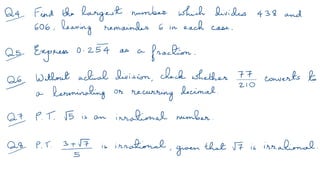 Q4. Find the largest number which divides 438 and
606, leaving remainder 6 in each case.
Q5. Express 0.2̅5̅4̅ as a fraction.
Q6. Without actual division, check whether 77/210 converts to
a terminating or recurring decimal
Q7. P.T. √5 is an irrational number.
Q8. P.T. (3+√7)/5 is irrational, given that √7 is irrational.